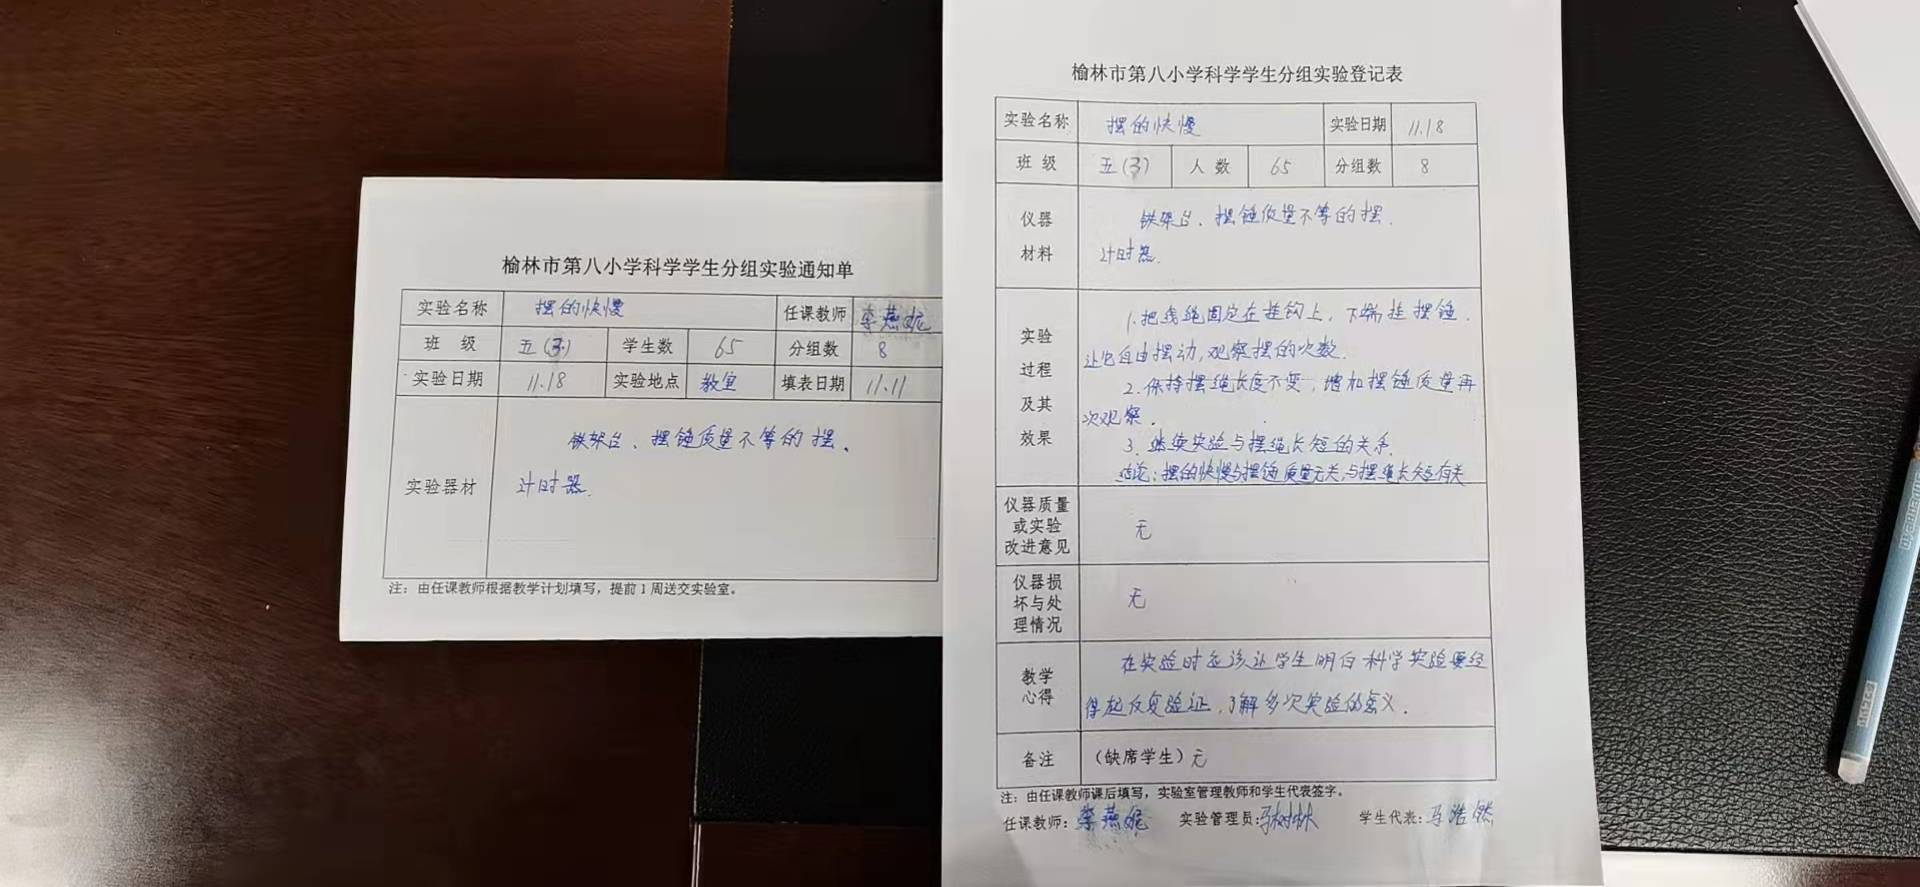 榆林市第八小学科学学生分组实验通知单
实验名称 摆的快慢 任课教师 李燕妮
班 级 五(3) 学生数 65 分组数 8
实验日期 11.18 实验地点 教室 填表日期 11.11
实验器材
铁架台、摆锤质量不等的摆、
计时器.
注：由任课教师根据教学计划填写，提前1周送交实验室。
榆林市第八小学科学学生分组实验登记表
实验名称 摆的快慢 实验日期 11.18
班 级 五(3) 人 数 65 分组数 8
仪器
材料
铁架台、摆锤质量不等的摆.
计时器.
实验
过程
及其
效果
1.把线绳固定在挂钩上，下端挂摆锤.
让它自由摆动,观察摆的次数.
2.保持摆绳长度不变，增加摆锤质量再
次观察.
3.继续实验与摆绳长短的关系.
结论：摆的快慢与摆锤质量无关,与摆绳长短有关
仪器质量
或实验
改进意见
无
仪器损
坏与处
理情况
无
教学
心得
在实验时应该让学生明白科学实验要经
得起反复验证，了解多次实验的意义.
备注 （缺席学生）无
注：由任课教师课后填写，实验室管理教师和学生代表签字。
任课教师：李燕妮 实验管理员：马树林 学生代表：马浩然